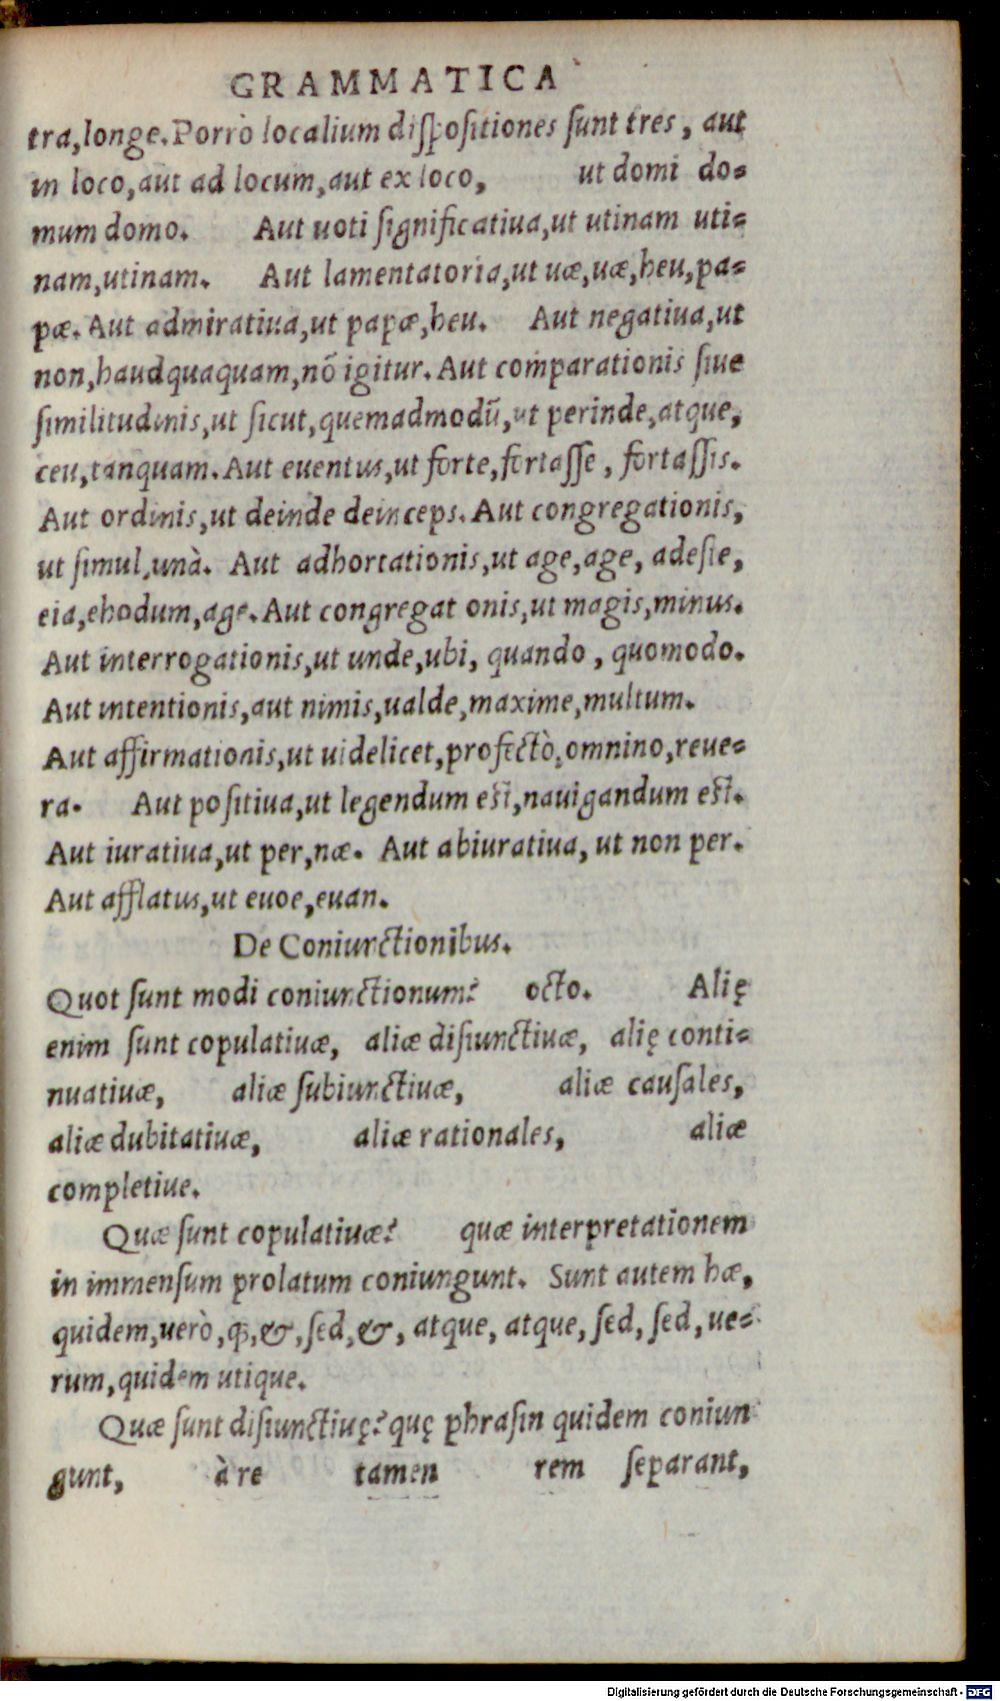 GRAMMATICA
tra,longe.Porrò localium diſpoſitiones ſunt tres, aut
in loco,aut ad locum,aut ex loco, ut domi do-
mum domo. Aut uoti ſignificatiua,ut utinam uti-
nam,utinam. Aut lamentatoria,ut uæ,uæ,heu,pa-
pæ. Aut admiratiua,ut papæ,heu. Aut negatiua,ut
non,haudquaquam,nõ igitur. Aut comparationis ſiue
ſimilitudinis,ut ſicut,quemadmodũ,ut perinde,atque,
ceu,tanquam. Aut euentus,ut forte,fortaſſe, fortaſſis.
Aut ordinis,ut deinde deinceps. Aut congregationis,
ut ſimul,unà. Aut adhortationis,ut age,age, adeſie,
eia,ehodum,age. Aut congregat onis,ut magis,minus.
Aut interrogationis,ut unde,ubi, quando, quomodo.
Aut intentionis,aut nimis,ualde,maxime,multum.
Aut affirmationis,ut uidelicet,profectò,omnino,reue-
ra. Aut poſitiua,ut legendum eſt,nauigandum eſt.
Aut iuratiua,ut per,næ. Aut abiuratiua, ut non per.
Aut afflatus,ut euoe,euan.
De Coniunctionibus.
Quot ſunt modi coniunctionum? octo. Alię
enim ſunt copulatiuæ, aliæ diſiunctiuæ, alię conti-
nuatiuæ, aliæ ſubiunctiuæ, aliæ cauſales,
aliæ dubitatiuæ, aliæ rationales, aliæ
completiue.
Quæ ſunt copulatiuæ? quæ interpretationem
in immenſum prolatum coniungunt. Sunt autem hæ,
quidem,uerò,ꝗ,&,ſed,&, atque, atque, ſed, ſed, ue-
rum,quidem utique.
Quæ ſunt diſiunctiuę? quę phraſin quidem coniun
gunt, à re tamen rem ſeparant,
Digitalisierung gefördert durch die Deutsche Forschungsgemeinschaft - DFG